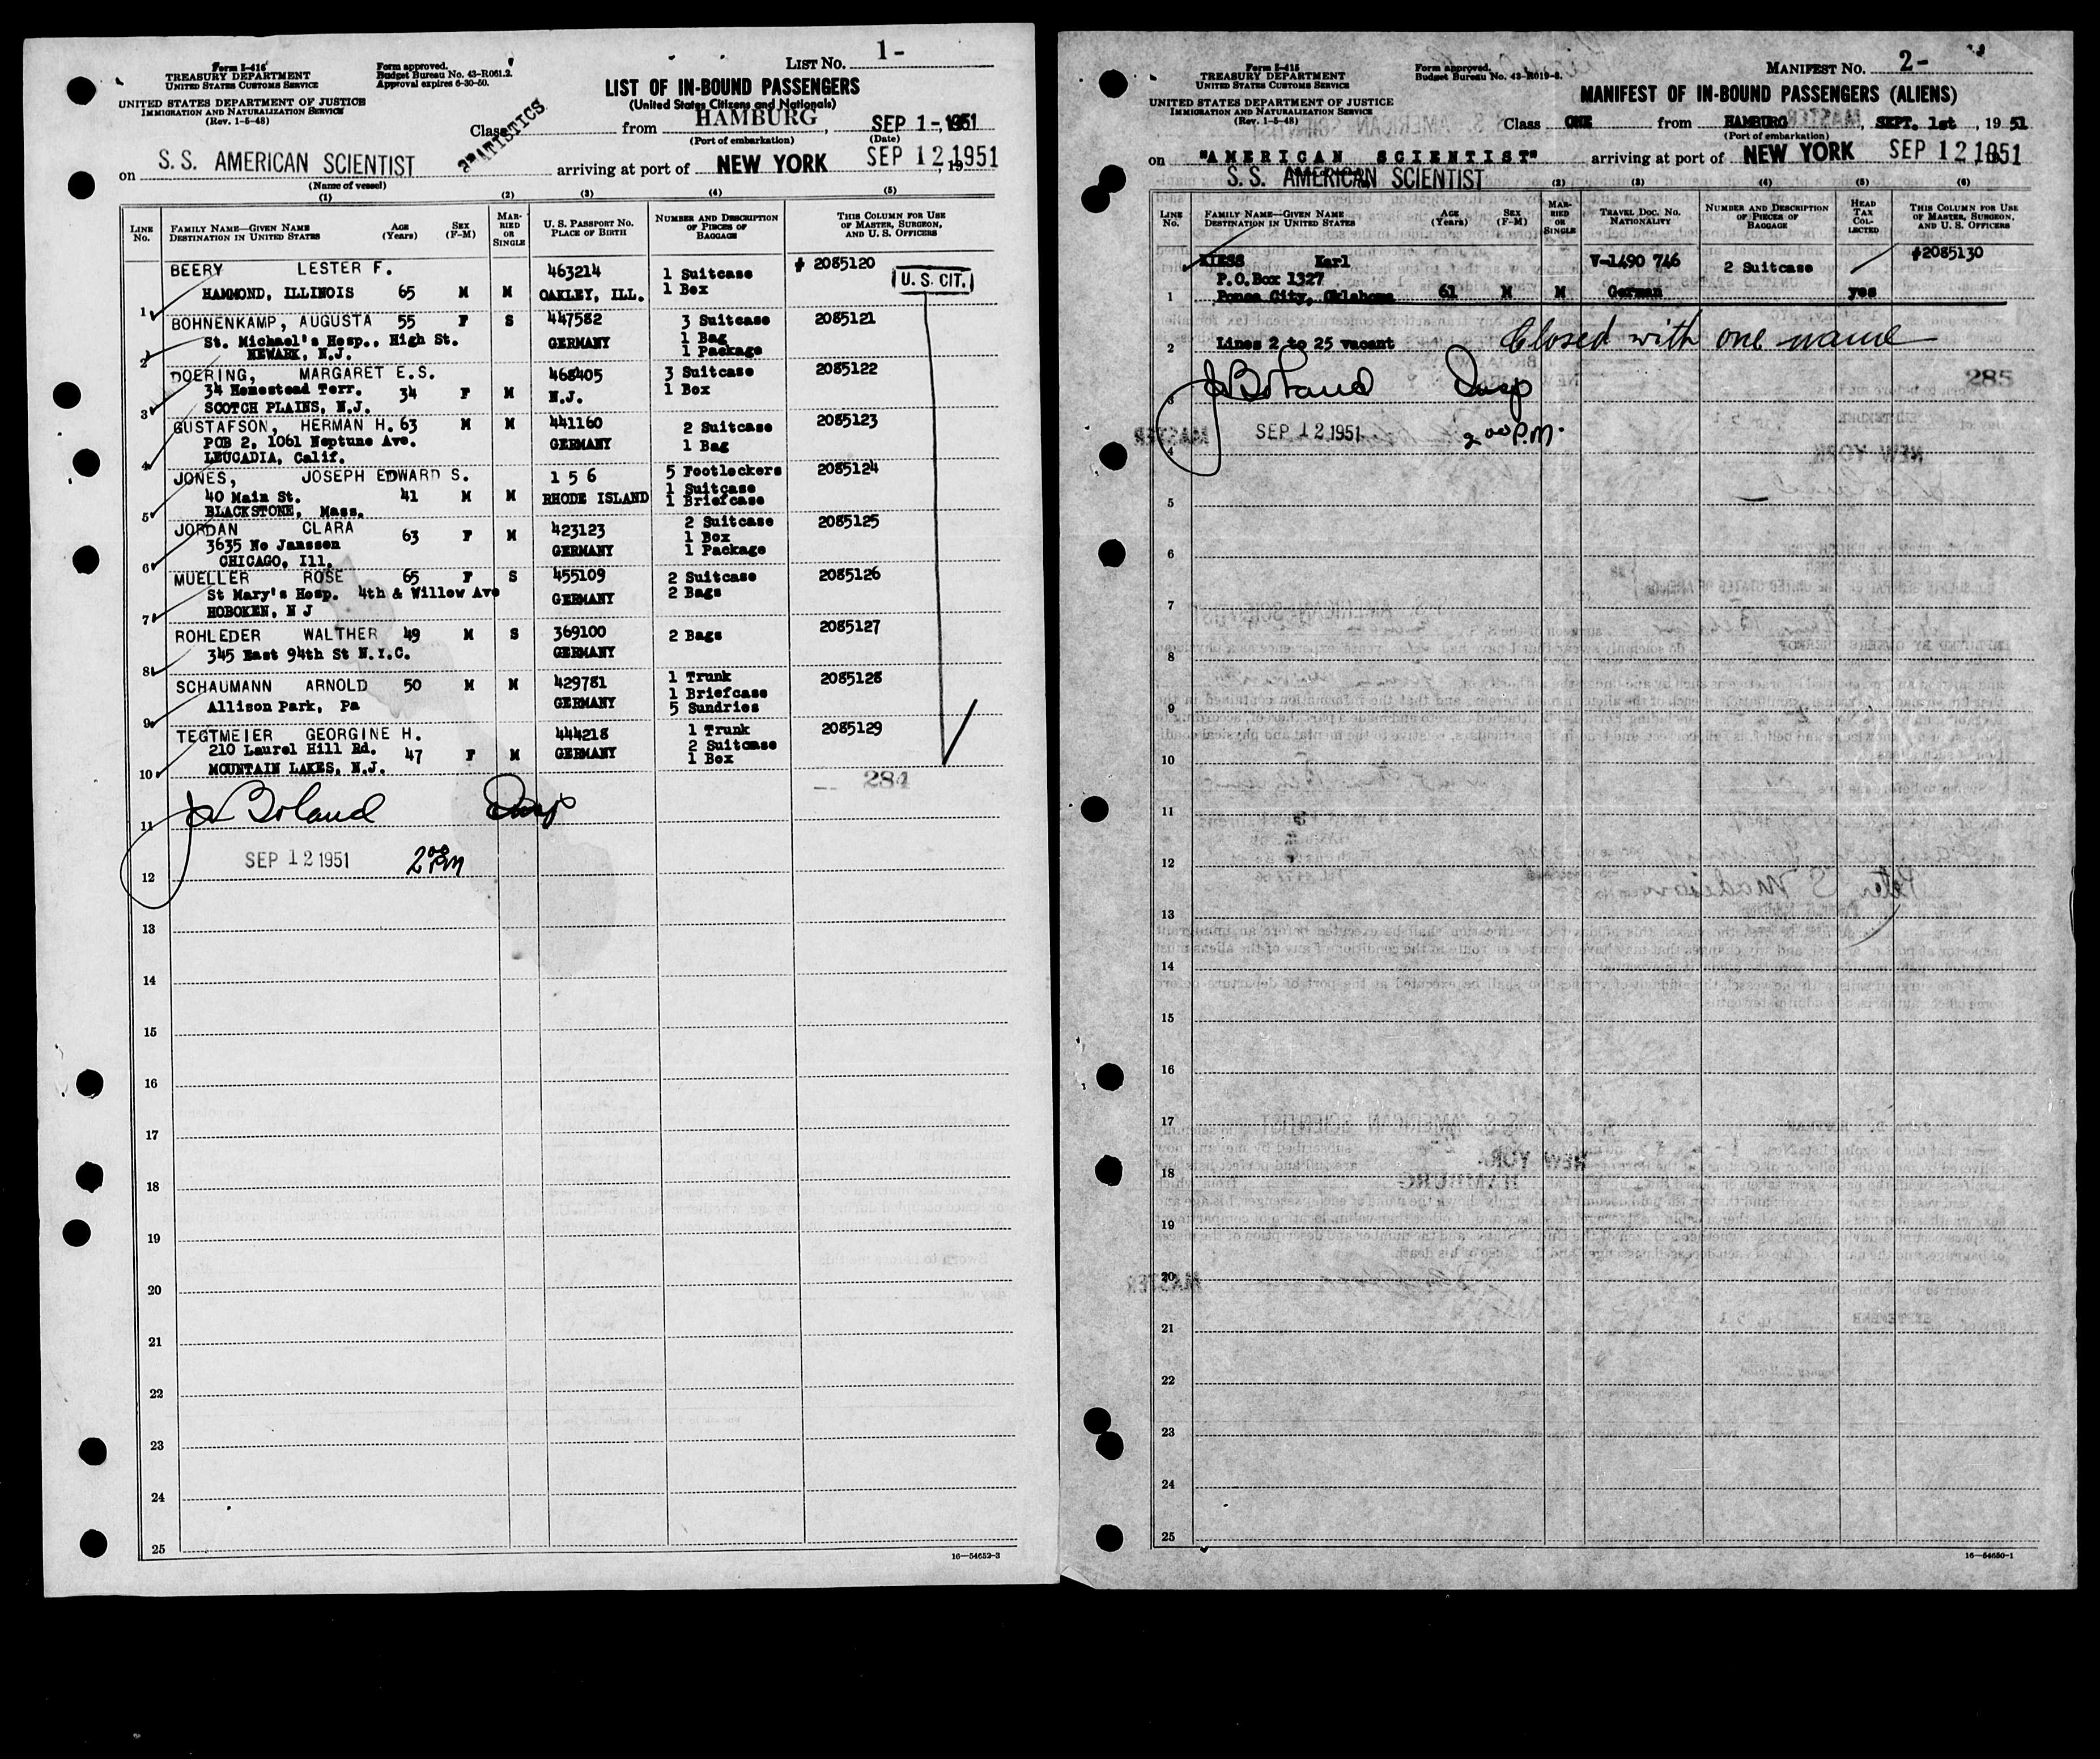 LIST NO. 1-
Form I-416
TREASURY DEPARTMENT
UNITED STATES CUSTOMS SERVICE
UNITED STATES DEPARTMENT OF JUSTICE
IMMIGRATION AND NATURALIZATION SERVICE
(Rev. 1-5-48)
Form approved.
Budget Bureau No. 43-R061.2.
Approval expires 6-30-50.
LIST OF IN-BOUND PASSENGERS
(United States Citizens and Nationals)
STATISTICS
Class from HAMBURG, SEP 1-, 1951
(Port of embarkation) (Date)
on S. S. AMERICAN SCIENTIST arriving at port of NEW YORK SEP 12 1951, 19
(Name of vessel)
(1) (2) (3) (4) (5)
LINE NO. FAMILY NAME—GIVEN NAME DESTINATION IN UNITED STATES AGE (Years) SEX (F-M) MARRIED OR SINGLE U. S. PASSPORT NO. PLACE OF BIRTH NUMBER AND DESCRIPTION OF PIECES OF BAGGAGE THIS COLUMN FOR USE OF MASTER, SURGEON, AND U. S. OFFICERS
BEERY LESTER F. 463214 1 Suitcase # 2085120
U. S. CIT.
1 HAMMOND, ILLINOIS 65 M M OAKLEY, ILL. 1 Box
BOHNENKAMP, AUGUSTA 55 F S 447582 3 Suitcase 2085121
St. Michael's Hosp., High St. GERMANY 1 Bag
2 NEWARK, N.J. 1 Package
DOERING, MARGARET E.S. 468405 3 Suitcase 2085122
34 Homestead Terr. 34 F M N.J. 1 Box
3 SCOTCH PLAINS, N.J.
GUSTAFSON, HERMAN H. 63 M M 441160 2 Suitcase 2085123
POB 2, 1061 Neptune Ave. GERMANY 1 Bag
4 LEUCADIA, Calif.
JONES, JOSEPH EDWARD S. 1 5 6 5 Footlockers 2085124
40 Main St. 41 M M RHODE ISLAND 1 Suitcase
5 BLACKSTONE, Mass. 1 Briefcase
JORDAN CLARA 63 F M 423123 2 Suitcase 2085125
3635 No Janssen 1 Box
6 CHICAGO, Ill. GERMANY 1 Package
MUELLER ROSE 65 F S 455109 2 Suitcase 2085126
St Mary's Hosp. 4th & Willow Ave GERMANY 2 Bags
7 HOBOKEN, N J
ROHLEDER WALTHER 49 M S 369100 2 Bags 2085127
8 345 East 94th St N.Y.C. GERMANY
SCHAUMANN ARNOLD 50 M M 429781 1 Trunk 2085128
9 Allison Park, Pa GERMANY 1 Briefcase
5 Sundries
TEGTMEIER GEORGINE H. 444218 1 Trunk 2085129
210 Laurel Hill Rd. 47 F M GERMANY 2 Suitcase
10 MOUNTAIN LAKES, N.J. 1 Box
284
Boland Insp
11
SEP 12 1951 2 00 PM
12
13
14
15
16
17
18
19
20
21
22
23
24
25
16—54652-3
MANIFEST NO. 2-
Form I-415
TREASURY DEPARTMENT
UNITED STATES CUSTOMS SERVICE
UNITED STATES DEPARTMENT OF JUSTICE
IMMIGRATION AND NATURALIZATION SERVICE
(Rev. 1-5-48)
Form approved.
Budget Bureau No. 43-R019-3.
MANIFEST OF IN-BOUND PASSENGERS (ALIENS)
Class ONE from HAMBURG, SEPT. 1st, 19 51
(Port of embarkation)
on "AMERICAN SCIENTIST" arriving at port of NEW YORK SEP 12 1951
S. S. AMERICAN SCIENTIST
(2) (3) (4) (5) (6)
LINE NO. FAMILY NAME—GIVEN NAME DESTINATION IN UNITED STATES AGE (Years) SEX (F-M) MARRIED OR SINGLE TRAVEL DOC. NO. NATIONALITY NUMBER AND DESCRIPTION OF PIECES OF BAGGAGE HEAD TAX COLLECTED THIS COLUMN FOR USE OF MASTER, SURGEON, AND U. S. OFFICERS
KIESS Karl V-1490 746 2 Suitcase #2085130
P.O.Box 1327
1 Ponca City, Oklahoma 61 M M German yes
2 Lines 2 to 25 vacant Closed with one name
285
3 Boland Insp
SEP 12 1951 2 00 P.M.
4
5
6
7
8
9
10
11
12
13
14
15
16
17
18
19
20
21
22
23
24
25
16—54650-1